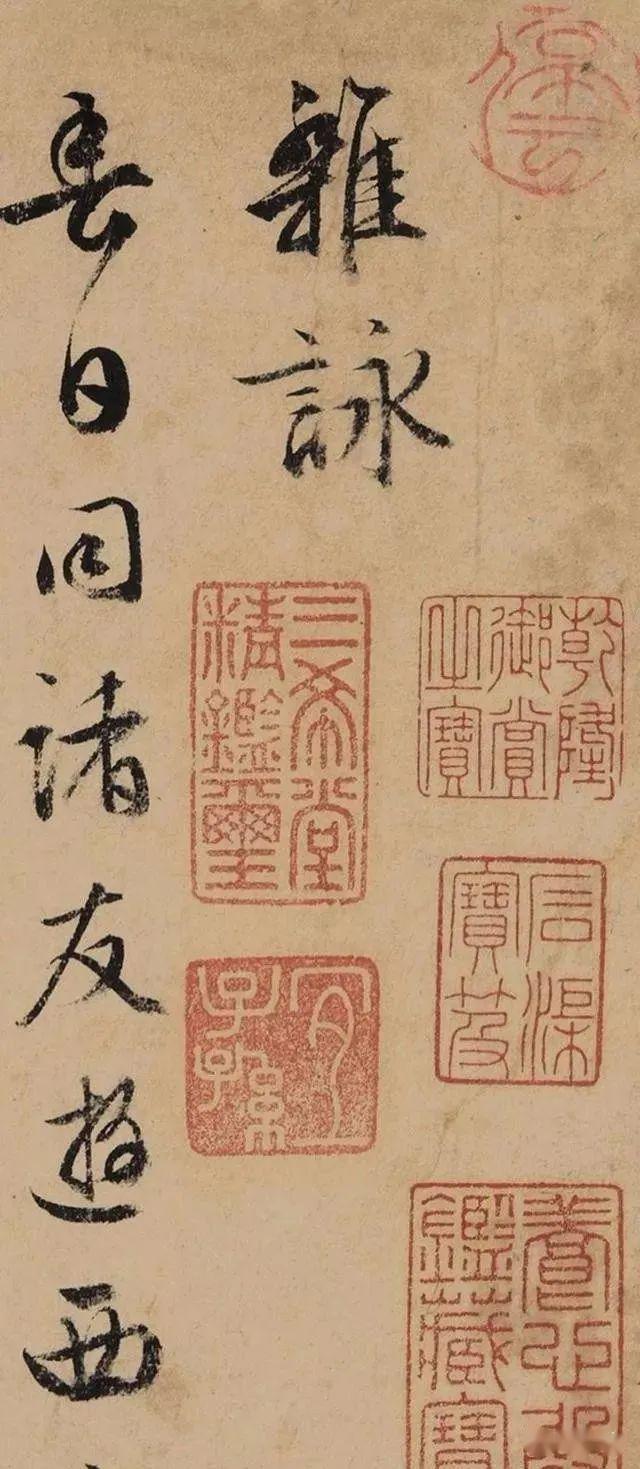 乾隆
御賞
之寶
石渠
寶笈
養心殿
鑑藏寶
雜詠
三希堂
精鑑璽
宜
子孫
春日同諸友遊西